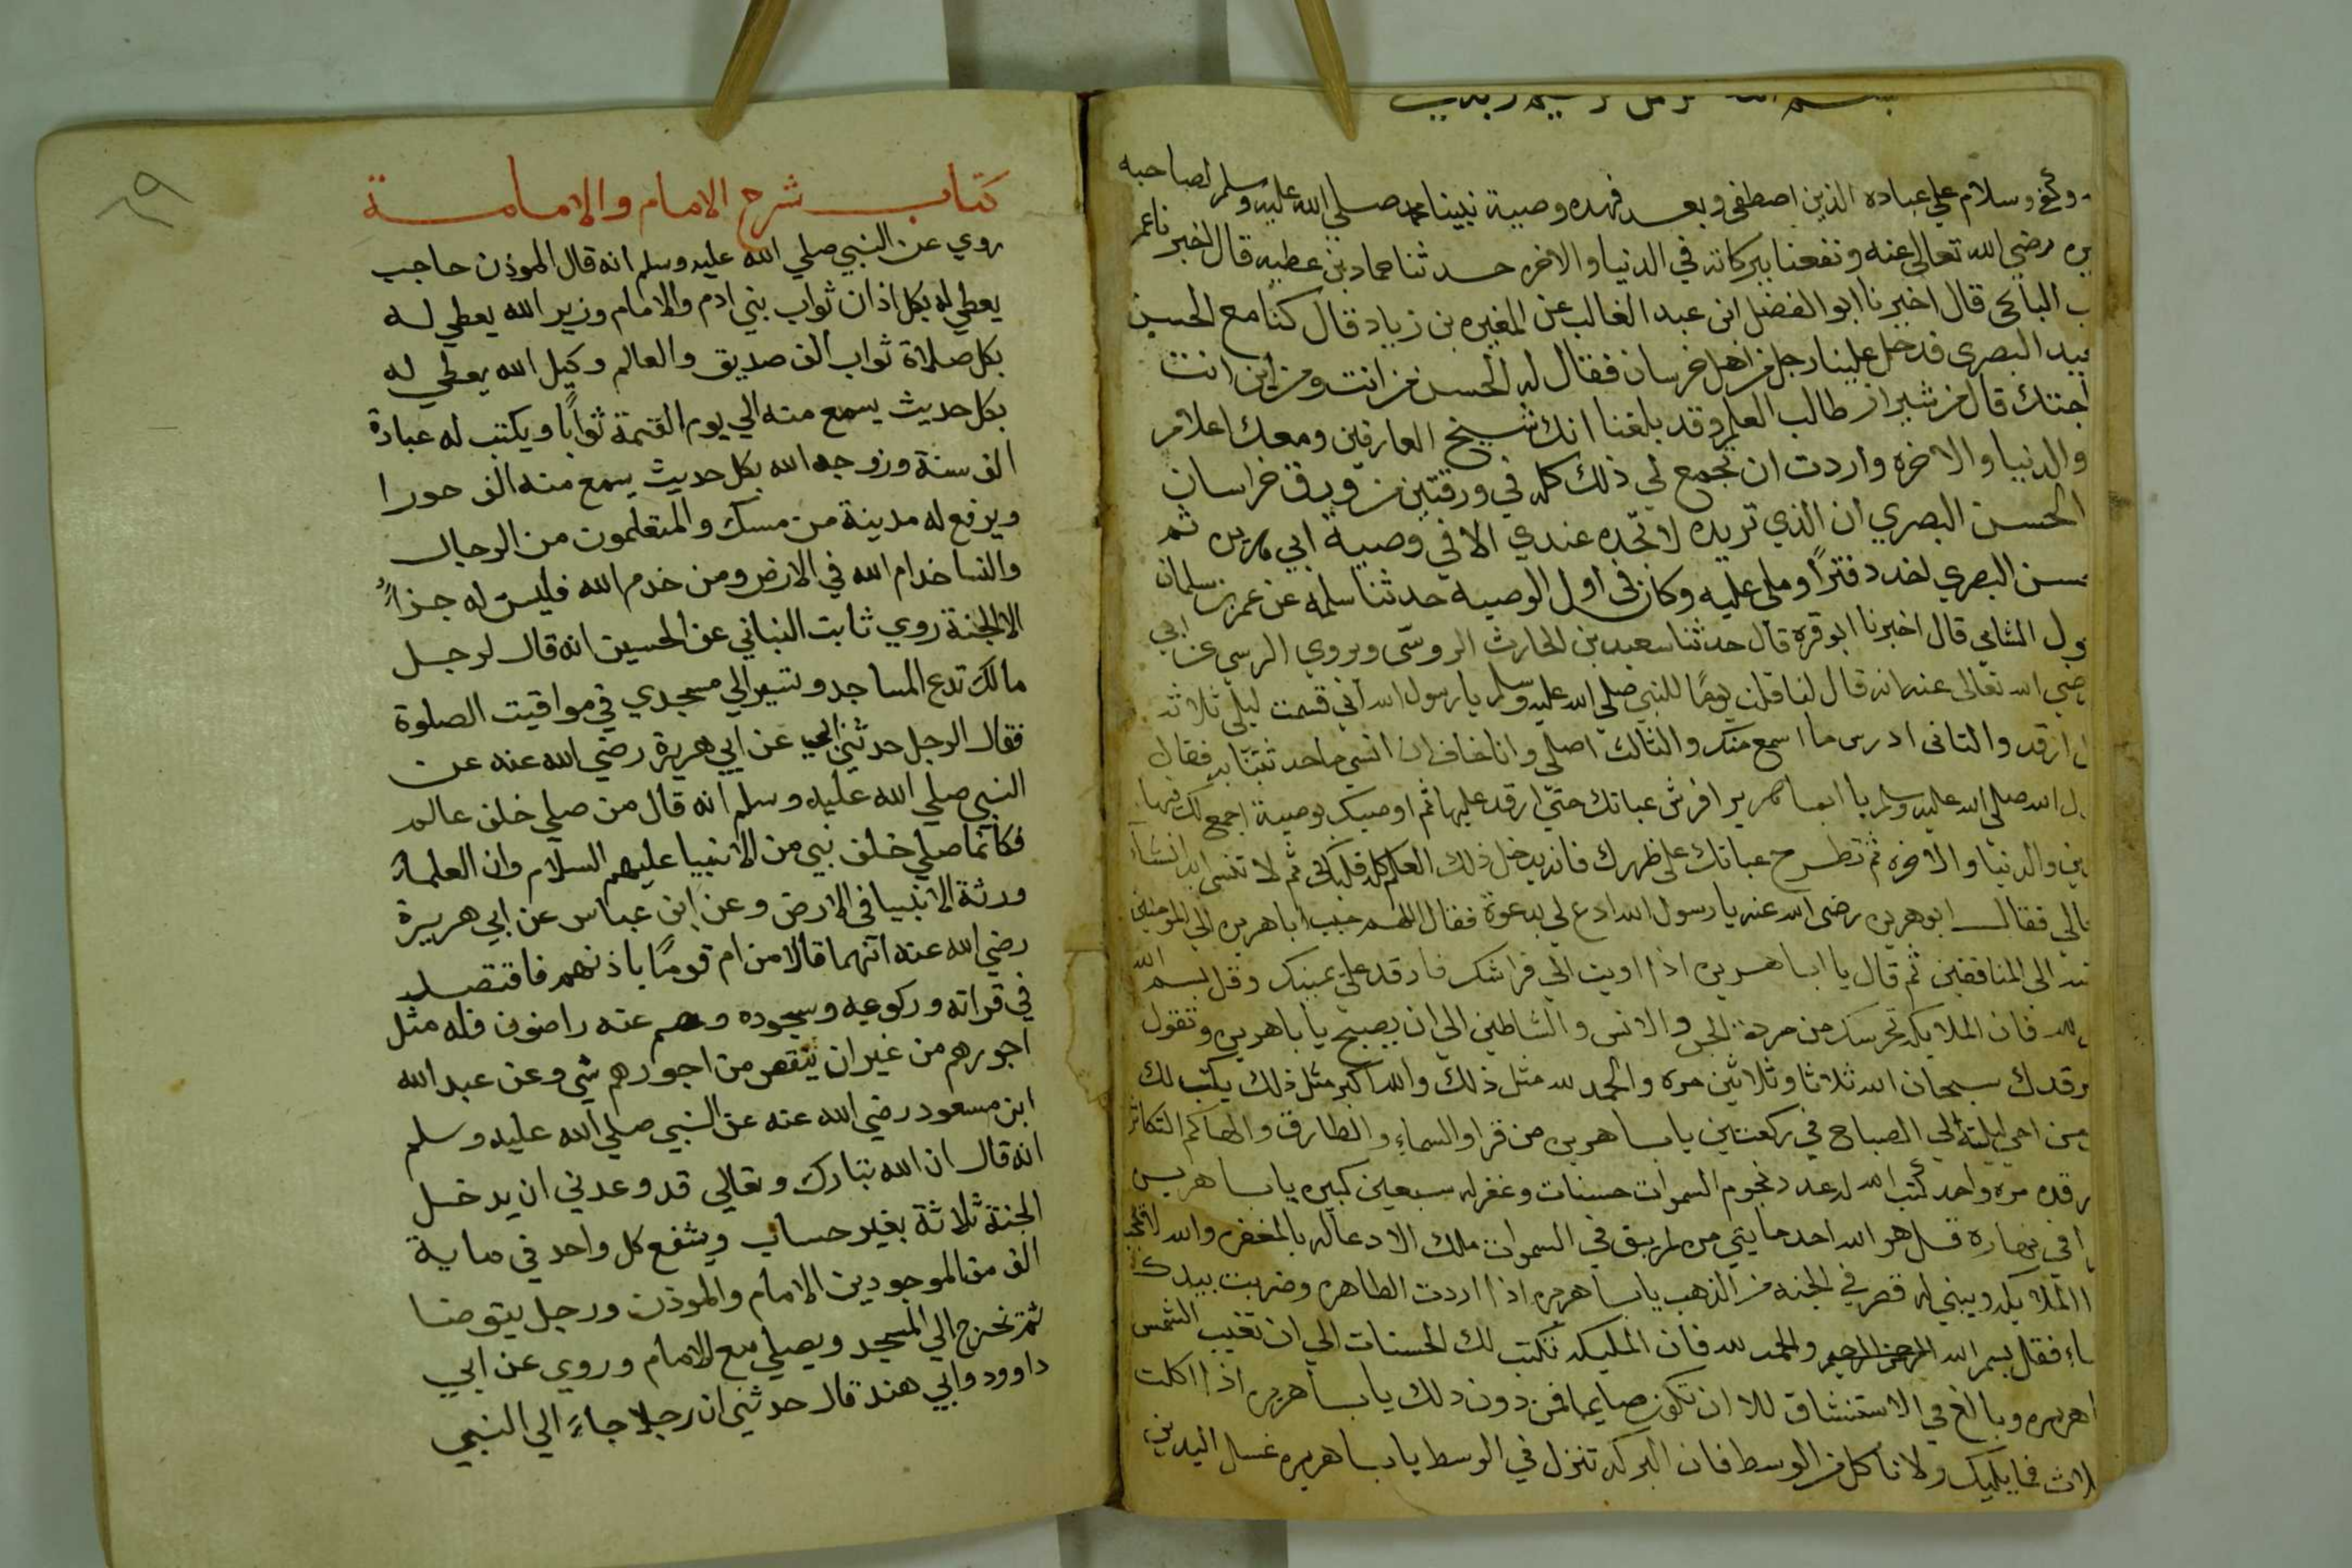 وكفى وسلام على عباده الذين اصطفى وبعد فهذه وصية نبينا محمد صلى الله عليه وسلم لصاحبه
يره رضي الله تعالى عنه ونفعنا ببركاته في الدنيا والاخره حدثنا حماد بن عطيه قال اخبرنا عمر
قال اخبرنا ابو الفضل ابن عبد الغالب عن المغيره بن زياد قال كنا مع الحسن
البصرى فدخل علينا رجل من اهل خرسان فقال له الحسن من انت ومن اين انت
جئتك قال من شيراز طالب العلم وقد بلغنا انك شيخ العارفين ومعك اعلام
والدنيا والاخره واردت ان تجمع لي ذلك كله في ورقتين من ورق خراسان
الحسن البصري ان الذي تريده لا تجده عندي الا في وصية ابي هريره ثم
سن البصري اخد دفترًا وملى عليه وكان في اول الوصيه حدثنا سلمه عن عمر بن سلمان
قال اخبرنا ابو قره قال حدثنا سعيد بن الحارث الروسى ويروي الرسي عن ابي
ضي الله تعالى عنه انه قال لنا قلت يومًا للنبي صلى الله عليه وسلم يا رسول الله اني قسمت ليلي ثلاثه
ارقد والثانى ادرس ما اسمع منك والثالث اصلي وانا اخاف ان انسى ما حدثتنا به فقال
ل الله صلى الله عليه وسلم يا ابا هريره افرش عباتك حتى ارقد عليها ثم اوصيك بوصية اجمع لك فيها
ين والدنيا والاخره ثم تطرح عباتك على ظهرك فانه يدخل ذلك العلم كله قلبك ثم لا تنسى ابدا انشاء
الى فقال ابو هريره رضى الله عنه يا رسول الله ادع لي بدعوة فقال اللهم حبب ابا هريره الى المومنين
الى المنافقين ثم قال يا ابا هريره اذا اويت الى فراشك فارقد على يمينك وقل بسم الله
لله فان الملايكه تحرسك من مردة الجن والانس والشاطين الى ان يصبح يا باهريره وتقول
رقدك سبحان الله ثلاثا وثلاثين مره والحمد لله مثل ذلك والله اكبر مثل ذلك يكتب لك
من احي ليلته الى الصباح في ركعتين يا باهريره من قرا والسماء والطارق والهاكم التكاثر
رقده مره واحد كتب الله له عدد نجوم السموات حسنات وغفر له سبعين كبيره يا باهريره
في نهاره قل هو الله احد مايتي مره لم يبق في السموات ملك الا دعا له بالمغفره والله
الملايكه ويبنى له قصر في الجنه من الذهب يا باهريره اذا اردت الطاهره وضربت بيدك
ماء فقل بسم الله الرحمن الرحيم والحمد لله فان المليكه تكتب لك الحسنات الى ان تغيب الشمس
هريره وبالغ في الاستنشاق للا ان تكون صايما فمن دون دلك يا باهريره اذا اكلت
لاث فما يليك ولا تاكل من الوسط فان البركه تنزل في الوسط يا باهريره غسل اليدين
٦٩
كتاب شرح الامام والامامة
روي عن النبي صلي الله عليه وسلم انه قال الموذن حاجب
يعطي له بكل اذان ثواب بني ادم والامام وزير الله يعطي له
بكل صلاة ثواب الف صديق والعالم وكيل الله يعطي له
بكل حديث يسمع منه الي يوم القيمة ثوابًا ويكتب له عبادة
الف سنة وزوجه الله بكل حديث يسمع منه الف حورا
ويرفع له مدينة من مسك والمتعلمون من الرجال
والنسا خدام الله في الارض ومن خدم الله فليس له جزاءً
الا الجنة روي ثابت النباني عن الحسين انه قال لرجل
مالك تدع المساجد وتسير الي مسجدي في مواقيت الصلوة
فقال الرجل حدثني ابي عن ابي هريرة رضي الله عنه عن
النبي صلي الله عليه وسلم انه قال من صلي خلف عالم
فكانما صلي خلف نبي من الانبيا عليهم السلام وان العلماء
ورثة الانبيا في الارض وعن ابن عباس عن ابي هريرة
رضي الله عنه انهما قالا من ام قومًا باذنهم فاقتصد
في قراته وركوعه وسجوده وهم عنه راضون فله مثل
اجورهم من غير ان ينقص من اجورهم شي وعن عبد الله
ابن مسعود رضي الله عنه عن النبي صلي الله عليه وسلم
انه قال ان الله تبارك وتعالي قد وعدني ان يدخل
الجنة ثلاثة بغير حساب ويشفع كل واحد في ماية
الف من الموجودين الامام والموذن ورجل يتوضا
ثم تخرج الي المسجد ويصلي مع الامام وروي عن ابي
داوود وابي هند قال حدثني ان رجلا جاء الي النبي